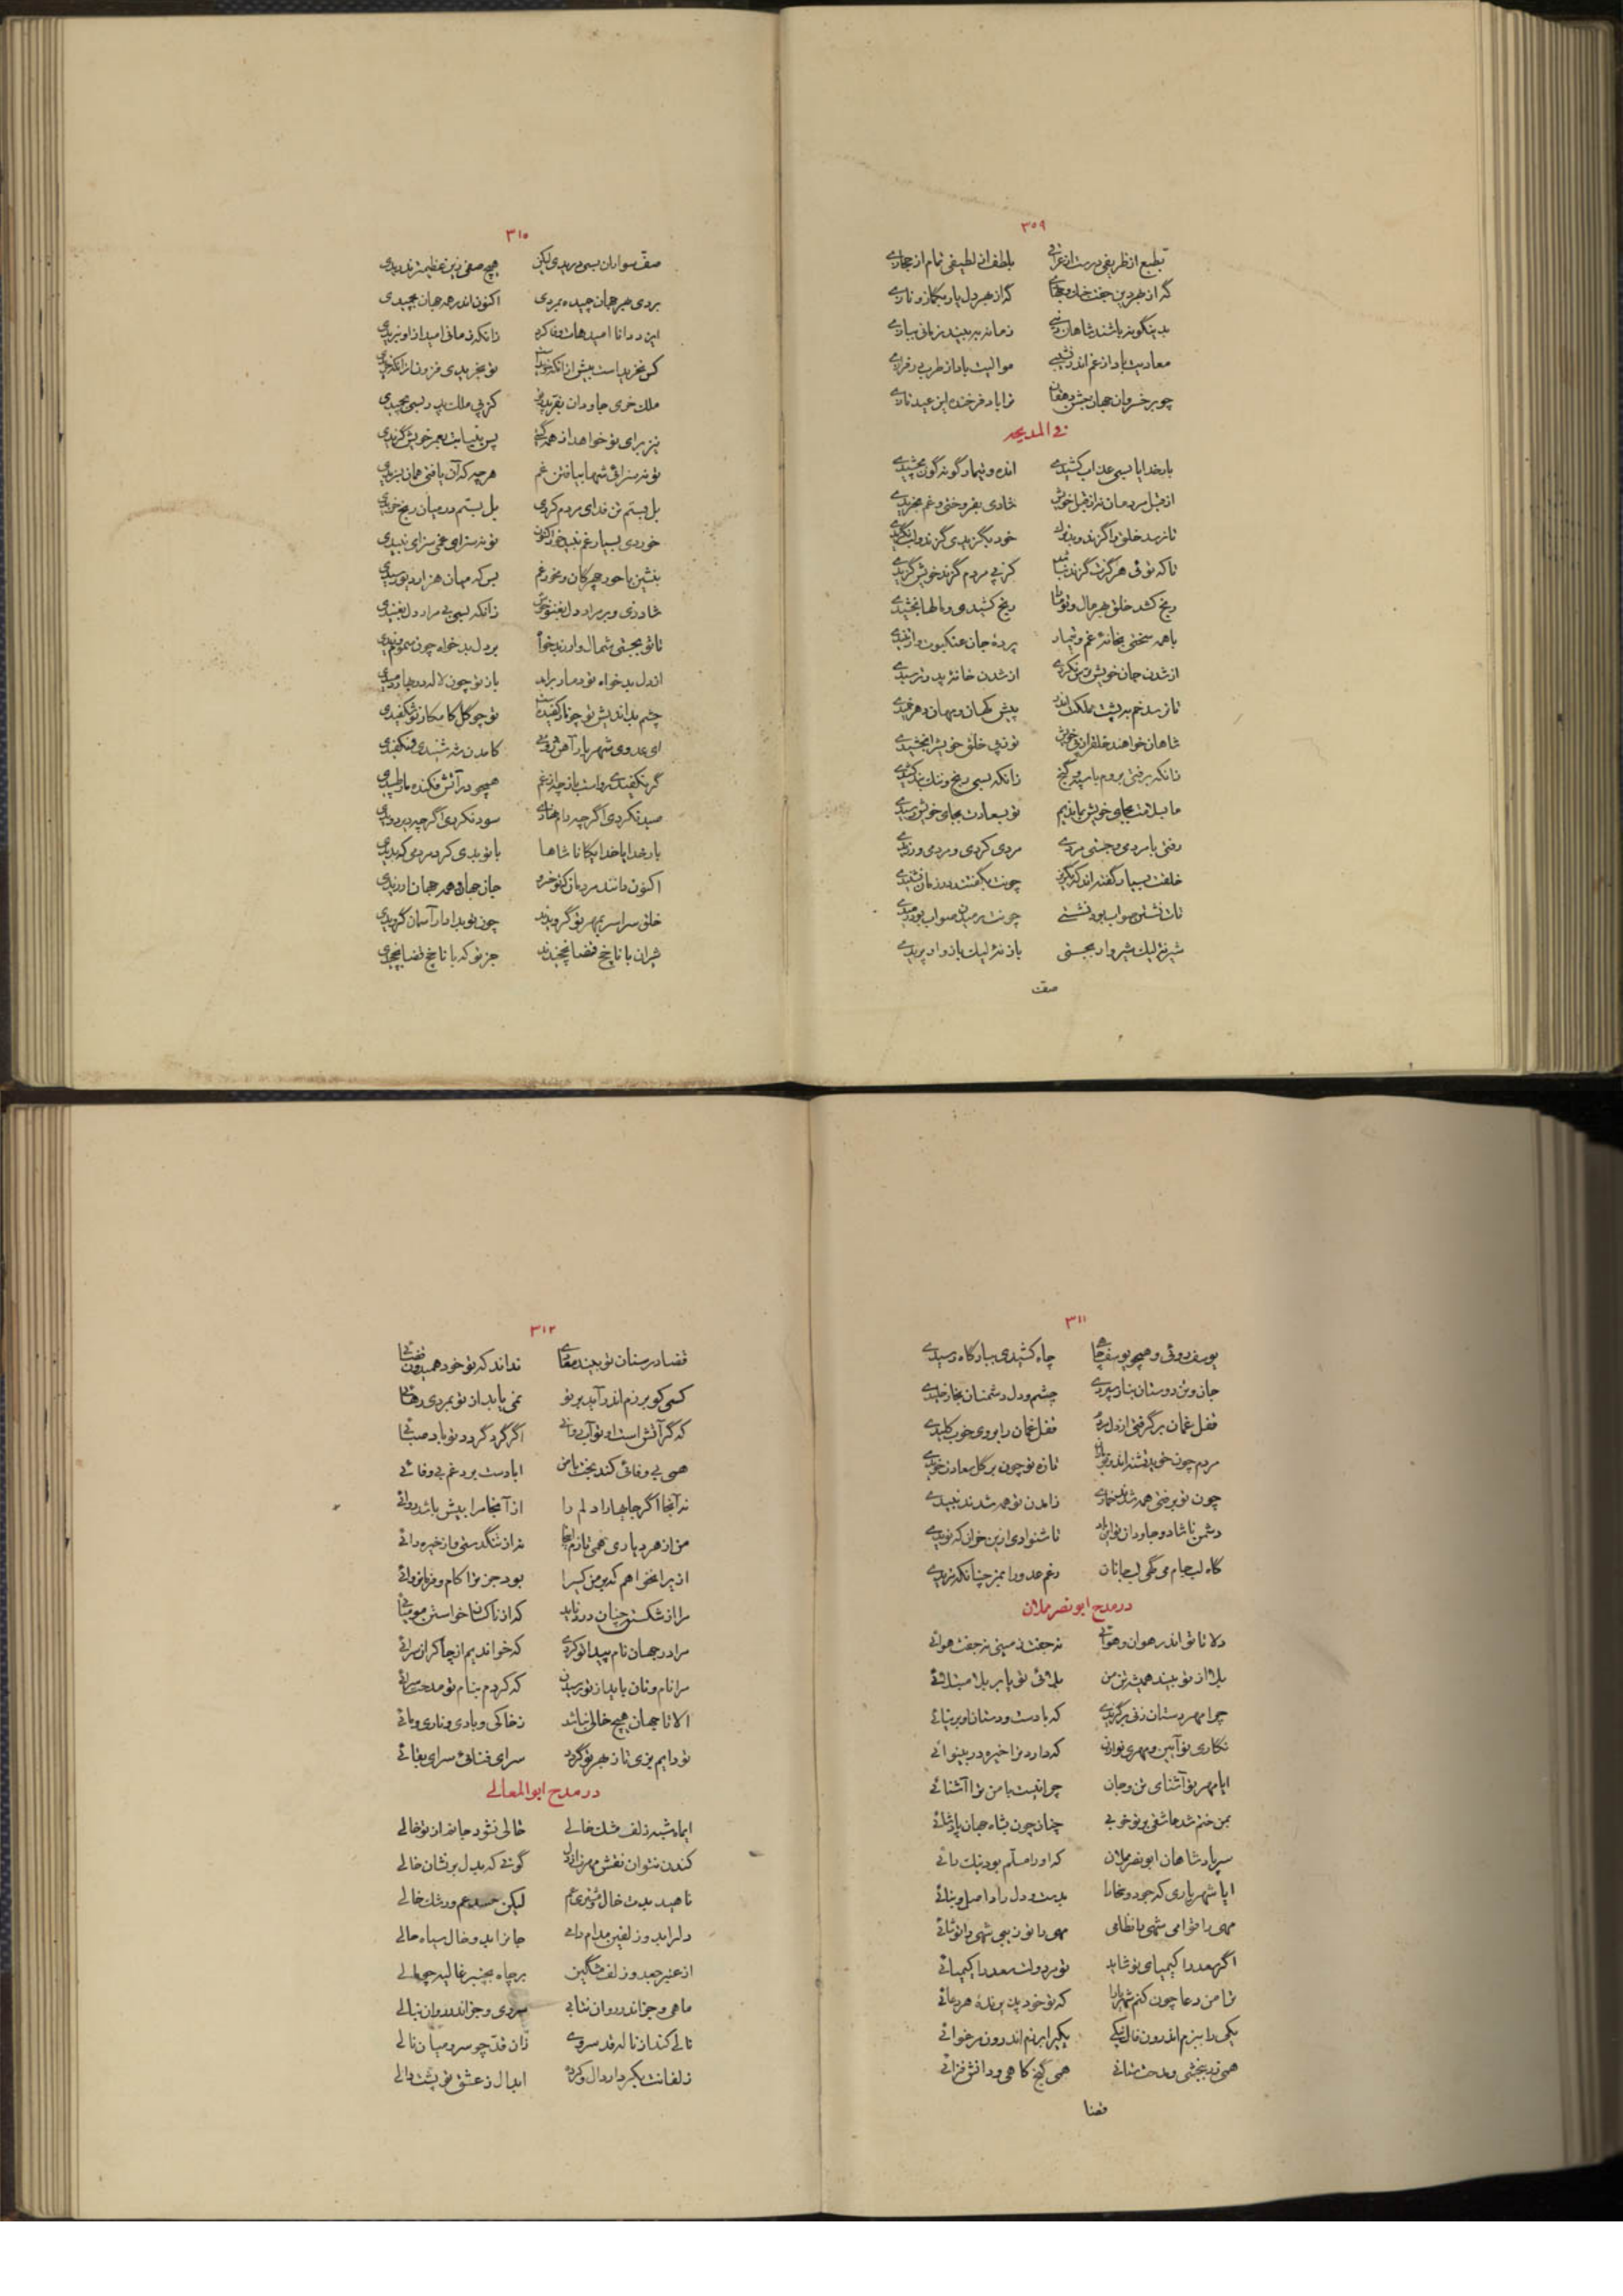 ۳۰۹
بطبع از ظریفی درست از عراقی بلطف از لطیفی تمام از حجازی
که از بهر دین جفت خان و گه از بهر دل یار بگماز و نازی
بدینگونه باشند شاهان زمانه نه بیند زمانی بیازی
معادیت باد از غم اندر نشیبی موالیت باد از طرب بر فرازی
چو بر خسروان جهان جشن دهقان ترا باد فرخنده این عید تازی
فی المدیحه
بار خدایا بسی عذاب کشیدی انده و تیمار گونه گون بچشیدی
از قبل مردمان نه از قبل خویش شادی بفروختی و غم بخریدی
تا نرسد خلق را گزند و بد تو خود بگزیدی گزند و لب نگزیدی
تا که توئی هرگزت گزند نباشد کز پی مردم گزند خویش گزیدی
رنج کشد خلق بهر مال و تو شاها رنج کشیدی و مالها بخشیدی
با همه سختی بخانه غم و تیمار پرده جان عنکبوت وار تنیدی
از شدن جان خویش بیم نکردی از شدن خانه پدر ترسیدی
تا نرسد خم به پشت مملکت اندر پیش کهان و مهان دهر خمیدی
شاهان خواهند خلق را ز پی خویش تو ز پی خلق خویش را بخشیدی
زانکه برفتی بروم با سپه و گنج زانکه بسی رنج و تنگ بند کشیدی
ما بسلامت بجای خویش بماندیم تو بسعادت بجای خویش رسیدی
رفتی با مردی و جستی مردی مردی کردی و مردمی ورزیدی
خلقت بسیار گفته اند که مگریز چونت بگفتند روز مان نشنیدی
تات نشستن صواب بود نشستی چونت رمیدن صواب بود رمیدی
شیر نئی لیک شیروار بجستی باز نئی لیک باز وار پریدی
صف
۳۱۰
صف سواران بسی دریدی لیکن هیچ صفی زین عظیمتر ندریدی
بردی بهر جهان چیده مردی اکنون اندر همه جهان بچمیدی
ایزد دانا امیدهات وفا کرد زانکه زمانی امید ازو نبریدی
کس نخریداست بیش از آنکه تو بخریدی فزون از آنکه
ملک خری جاودان کز پی ملک پدر بسی بچمیدی
نیز برای تو خواهد از همه گیتی پس بنیابت بعمر خویش گزیدی
تو نه سزائی شها بیافتن غم هر چه که آن یافتی همان بسزیدی
بل بستم تن فدای مردم کردی بل بستم در میان رنج خزیدی
خوردی بسیار غم نبید خور اکنون تو نه سزای غمی سزای نبیدی
بنشین با حور چهرگان و مخور غم بس که میان هزار دیو رسیدی
شاد زی و بر مراد دل بغنو خوش زانکه بسی بی مراد دل بغنیدی
تا تو بجستی شمال وار ز بدخواه بر دل بدخواه چون سموم وزیدی
از دل بدخواه تو دمار برآمد باز تو چون لاله در بهار دمیدی
چشم بداندیش تو چو نار کفیده است تو چو گل کامکار تو شکفیدی
ای عدوی شهریار آهن روئی کامدن شه شنیدی و نکفیدی
گر بکفیدی رواست باز چه از غم همچو در آتش فکنده مار طپیدی
صید نکردی اگر چه دام نهادی سود نکردی اگر چه دیر دویدی
بار خدایا خدایگانا شاها با تو بدی کرد مردمی که بدیدی
اکنون دانند مردمان که تو خود جان جهان و همه جهان ارزیدی
خلق سراسر بمهر تو گرویدند چون تو بدادار آسمان گرویدی
شیران با تاخ قضا نچخیدند جز تو که با تاخ قضا بچخیدی
۳۱۱
یوسف روئی و همچو یوسف چاهی چاه کشیدی ببارگاه رسیدی
جان و تن دوستان بناز سپردی چشم و دل دشمنان بخار خلیدی
قفل غمان برگرفتی از دل مردم قفل غمان را بروی خوب کلیدی
مردم چون خوید تشنه اند و تو باران تازه تو چون برگ گل معادن خویدی
چون تو برفتی همه شدند خماری زآمدن تو همه شدند نبیدی
دشمن ناشاد و جاودان تو ایراد تا شنوادی ازین خوان که نویدی
گاه لب جام می گهی لب جانان رغم عدو را بمز چنانکه مزیدی
در مدح ابو نصر مملان
دلا تا تو اندر هوان و هوائی نه جفت زمینی نه جفت هوائی
بلا از تو بیند همیشه تن من بلائی تو یا بر بلا مبتلائی
چرا مهر دستان زنی برگزیدی که با دست و دستان او برنیائی
نگاری نو آیین و مهری نوازن که دارد ترا خیره در بینوائی
ایا مهر تو آشنای تن و جان چرا نیست با من ترا آشنائی
بمن ختم شد عاشقی بر تو خوبی چنان چون بشاه جهان پادشائی
سر پادشاهان ابو نصر مملان که او را مسلم بود نیک رائی
ایا شهریاری که جود و سخا را بدست و دل راد اصل و بنائی
مهی را قوامی شهی را نظامی مهی را تو زیبی شهی را تو شائی
اگر سعد را کیمیای تو شاید تو بر دولت سعد را کیمیائی
ترا من دعا چون کنم شهریارا که تو خود پذیرنده هر دعائی
یکی را ببزم اندرون مال بخشی یکی را برزم اندرون مرغوائی
همی زر بخشی و مدحت ستانی همی گنج کاهی و دانش فزائی
قضا
۳۱۲
قضا در سنان تو بیند معادی نداند که تو خود همیدون قضائی
کسی کو برزم اندر آید بر تو نمی یابد از تو بمردی رهائی
که گر آتش است او تو آب روانی اگر گرد گردد تو باد صبائی
همی بی وفائی کند بخت با من ابا دست برد غم بی وفائی
نه آنجا اگر جاه ها را دلم را از آنجا مرا بیش باشد روائی
من از هر دیاری همی تازم اینجا نه از تنگدستی و از خیره رائی
ازیرا نخواهم که بر من کسی را بود جز ترا کام و فرمانروائی
مرا از شکستن چنان درد ناید که از ناکسان خواستن مومیائی
مرا در جهان نام پیدا تو کردی که خواندیم از چاکران سرائی
مرا نام و نان باید از تو رسیدن که کردم بنام تو مدحت سرائی
الا تا جهان هیچ خالی نباشد ز خاکی و بادی و ناری و مائی
تو دایم بزی تا ز بهر تو گردد سرای فنائی سرای بقائی
در مدح ابوالمعالی
ای ماه شبه زلف مشک خالی خالی نشود جانم از تو خالی
کندن نتوان نقش مهرت از دل گوئی که بدل بر نشان خالی
ناهید بدت خال مشتری عم لیکن حسد عم و رشک خالی
دلرا بدو زلفین مدام دامی جانرا بدو خال سیاه حالی
از عنبر جعد و زلف مشگین بر چاه بچنبر غالیه چو والی
ماهی و جز اندر روان نتابی سروی و جز اندر روان نبالی
نالی کند از ناله قد سروی زان قد چو سرو میان نالی
زلفانت بکردار دال و کرده ابدال ز عشق تو پشت دالی